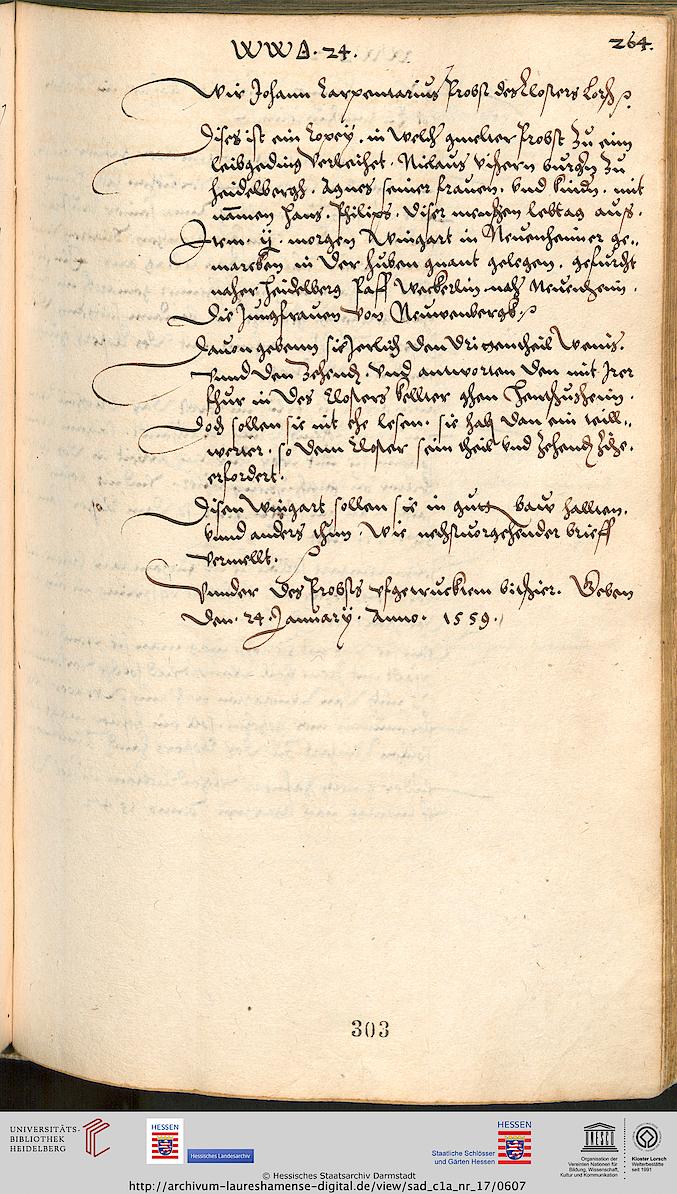 WWA. 24.
264.
Wir Johann Carpentarius Probst des Closters Lorsch
Dises ist ein Copey, in welch gmelter Probst zu eim
leibgeding Verleihet. Niclaus Vischern burgern zu
heidelbergh. Agnes seiner frauen. Vnd kindn. mit
nammen Hans. Philips. diser menschen lebtag aus.
Item. ij. morgen Wingart in Neuenheimer ge-
marcken in der huben gnant gelegen. gefurcht
naher Heidelberg Pfaff Weckerlin nach Neuenheim.
Die Jungfrauen von Neuwenbergk.
Dauon gebenn sie Jerlich dem Drittentheil Weins.
Vnnd den Zehend. Vnd antworten den mit Irer
fhur in des Closters kellter ghen Hentschusheim.
Doch sollen sie nit ehe lesen. sie hab dan ein
so dem Closter sein theil Vnd zehend
erfordert.
Disen Wingart sollen sie in gutt baw hallten.
Vnnd anders thun. Wie nechstuorgehender brieff
Vermellt.
Vnnder des Probsts vfgetrucktem bitschier. Geben
den. 24. January. Anno. 1559.
303
UNIVERSITÄTS-
BIBLIOTHEK
HEIDELBERG
HESSEN
Hessisches Landesarchiv
Staatliche Schlösser
und Gärten Hessen
HESSEN
UNESCO
Organisation der
Vereinten Nationen für
Bildung, Wissenschaft,
Kultur und Kommunikation
Kloster Lorsch
Welterbestätte
seit 1991
© Hessisches Staatsarchiv Darmstadt
http://archivum-laureshamense-digital.de/view/sad_c1a_nr_17/0607